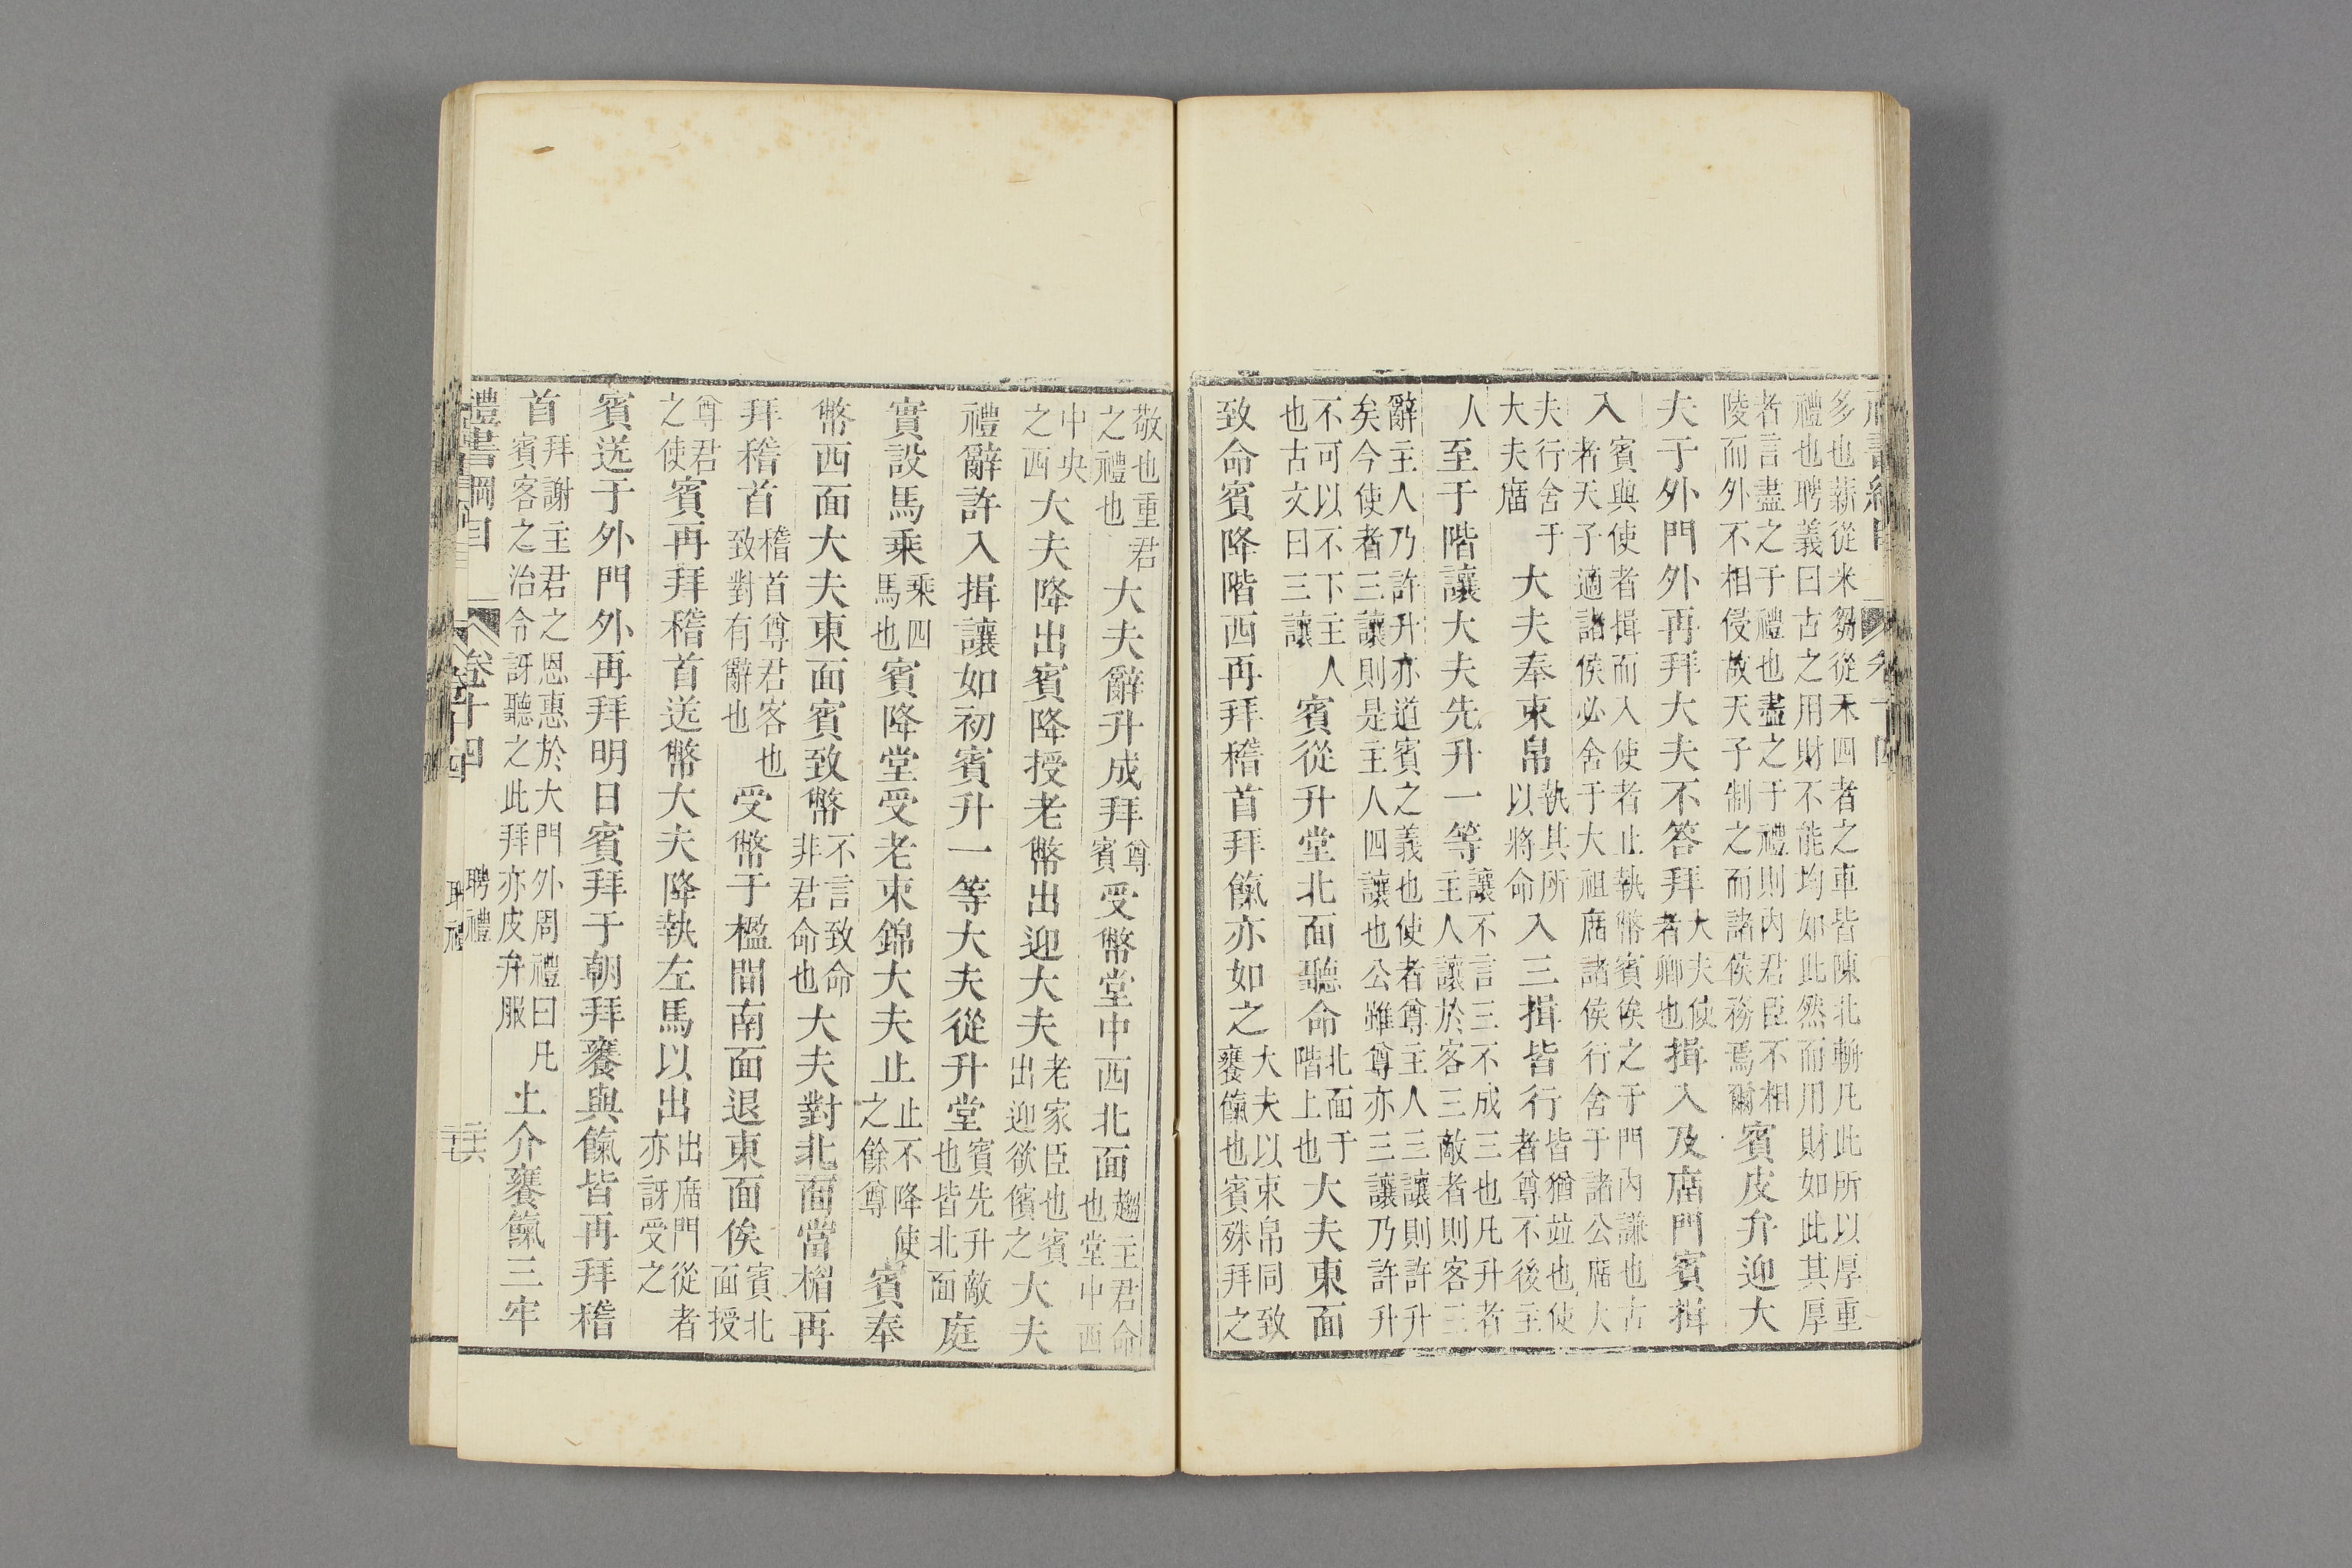 多也薪從米芻從禾四者之車皆陳北輈凡此所以厚重
禮也聘義曰古之用財不能均如此然而用財如此其厚
者言盡之于禮也盡之于禮則內君臣不相
陵而外不相侵故天子制之而諸侯務焉爾賓皮弁迎大
夫于外門外再拜大夫不答拜大夫使者卿也揖入及庿門賓揖
入賓與使者揖而入使者止執幣賓俟之于門內謙也古
者天子適諸侯必舍于大祖庿諸侯行舍于諸公庿大
夫行舍于大夫庿大夫奉束帛執其所以將命入三揖皆行皆猶竝也使者尊不後主
人至于階讓大夫先升一等讓不言三不成三也凡升者主人讓於客三敵者則客三
辭主人乃許升亦道賓之義也使者尊主人三讓則許升
矣今使者三讓則是主人四讓也公雖尊亦三讓乃許升
不可以不下主人也古文曰三讓賓從升堂北面聽命北面于階上也大夫東面
致命賓降階西再拜稽首拜餼亦如之大夫以束帛同致饔餼也賓殊拜之
敬也重君之禮也大夫辭升成拜尊賓受幣堂中西北面趨主君命也堂中西
中央之西大夫降出賓降授老幣出迎大夫老家臣也賓出迎欲儐之大夫
禮辭許入揖讓如初賓升一等大夫從升堂賓先升敵也皆北面庭
實設馬乘乘四馬也賓降堂受老束錦大夫止止不降使之餘尊賓奉
幣西面大夫東面賓致幣不言致命非君命也大夫對北面當楣再
拜稽首稽首尊君客也致對有辭也受幣于楹間南面退東面俟賓北面授
尊君之使賓再拜稽首送幣大夫降執左馬以出出庿門從者亦訝受之
賓送于外門外再拜明日賓拜于朝拜饔與餼皆再拜稽
首拜謝主君之恩惠於大門外周禮曰凡賓客之治令訝聽之此拜亦皮弁服士介饔餼三牢
禮書綱目 卷十四 聘禮